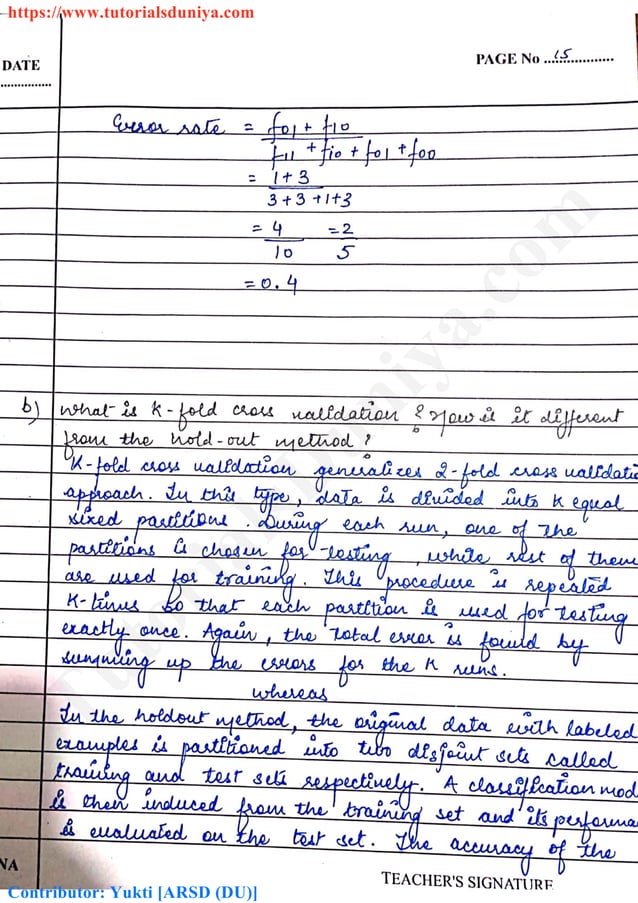 https://www.tutorialsduniya.com
DATE
PAGE No 15
Error rate = f01 + f10
f11 + f10 + f01 + f00
= 1+3
3+3+1+3
= 4 = 2
10 5
= 0.4
b) What is K-fold cross validation ? How is it different
from the hold-out method ?
K-fold cross validation generalizes 2-fold cross validatio
approach. In this type, data is divided into K equal
sized partitions. During each run, one of the
partitions is chosen for testing, while rest of them
are used for training. This procedure is repeated
K-times so that each partition is used for testing
exactly once. Again, the total error is found by
summing up the errors for the K runs.
whereas
In the holdout method, the original data with labeled
examples is partitioned into two disjoint sets called
training and test sets respectively. A classification mod
is then induced from the training set and its performa
is evaluated on the test set. The accuracy of the
NA
TEACHER'S SIGNATURE
Contributor: Yukti [ARSD (DU)]
tutorialsduniya.com